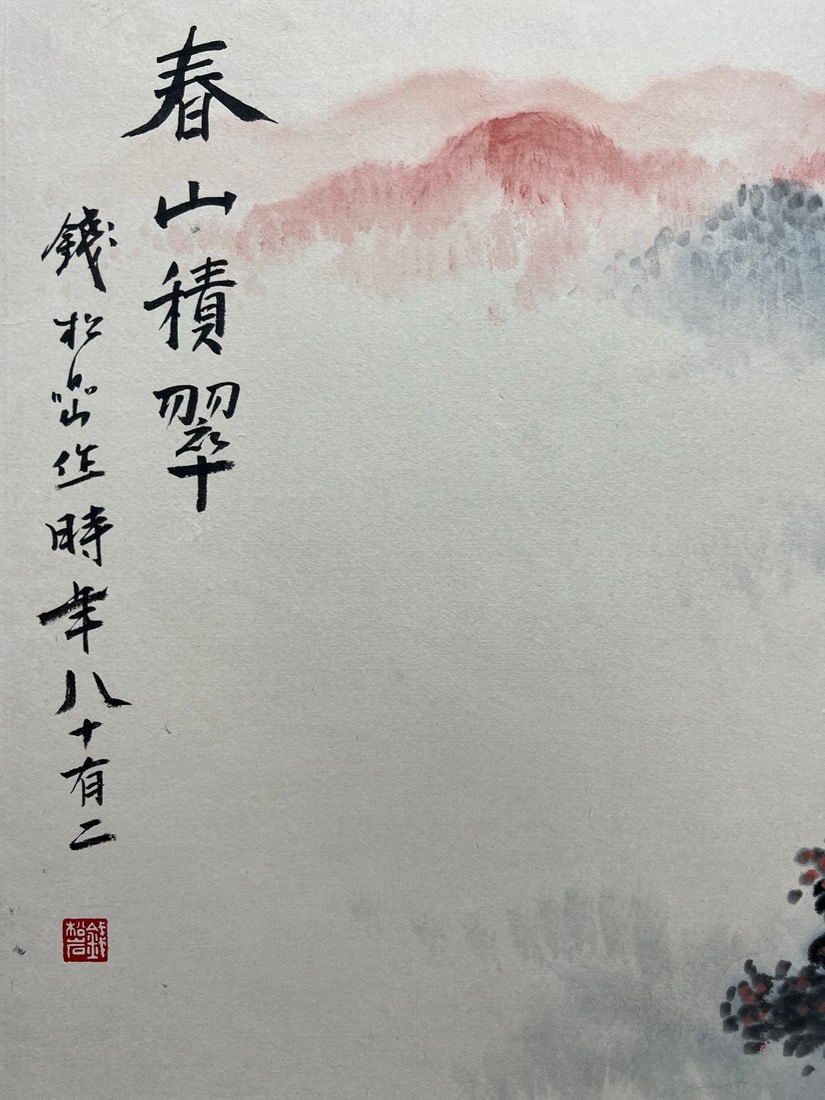 春山積翠
錢松喦作時年八十有二
錢松嵒